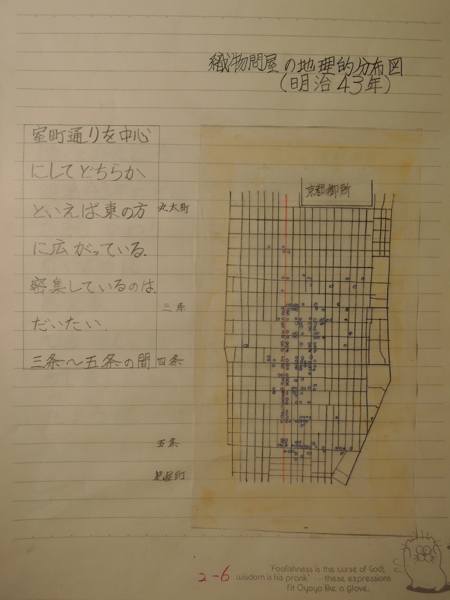 織物問屋の地理的分布図
(明治43年)
室町通りを中心
にしてどちらか
といえば東の方
に広がっている.
密集しているのは
だいたい.
三条〜五条の間
京都御所
丸太町
三条
四条
五条
2-6
"Foolishness is the curse of God;
wisdom is his prank" --- these expressions
fit Oyoyo like a glove.